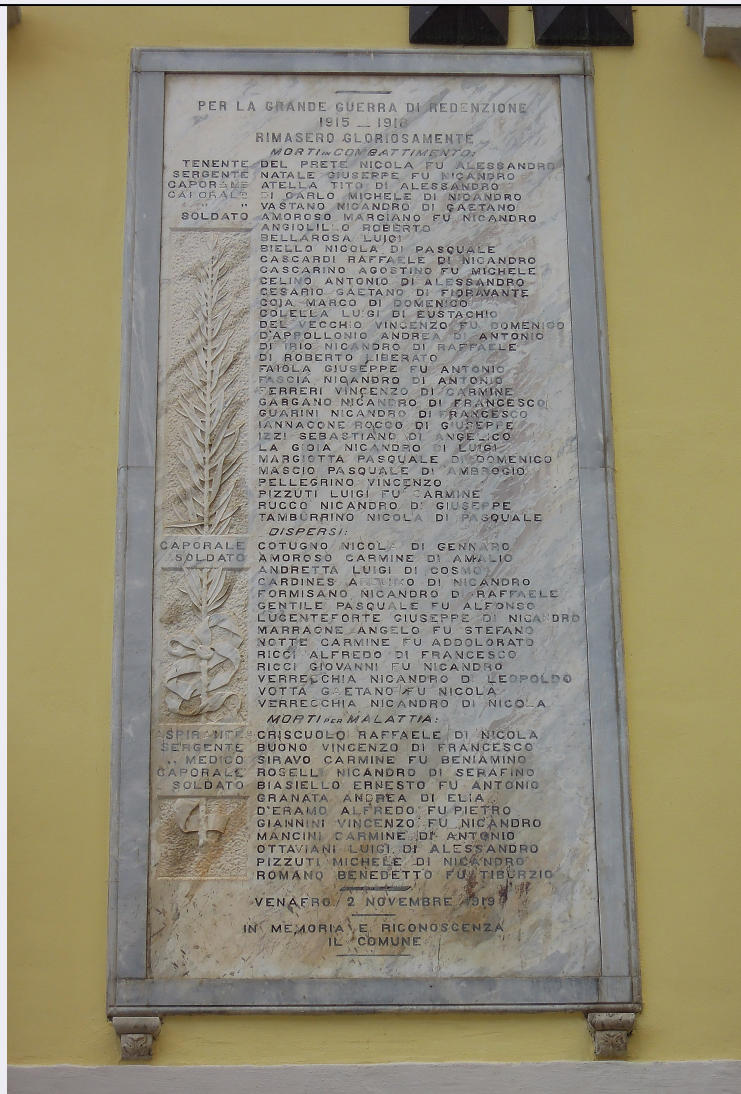 PER LA GRANDE GUERRA DI REDENZIONE
1915 _ 1918
RIMASERO GLORIOSAMENTE
MORTI IN COMBATTIMENTO:
TENENTE DEL PRETE NICOLA FU ALESSANDRO
SERGENTE NATALE GIUSEPPE FU NICANDRO
CAPORALE ATELLA TITO DI ALESSANDRO
CAPORALE DI CARLO MICHELE DI NICANDRO
" " VASTANO NICANDRO DI GAETANO
SOLDATO AMOROSO MARCIANO FU NICANDRO
ANGIOLILLO ROBERTO
BELLAROSA LUIGI
BIELLO NICOLA DI PASQUALE
CASCARDI RAFFAELE DI NICANDRO
CASCARINO AGOSTINO FU MICHELE
CELINO ANTONIO DI ALESSANDRO
CESARIO GAETANO DI FIORAVANTE
COIA MARCO DI DOMENICO
COLELLA LUIGI DI EUSTACHIO
DEL VECCHIO VINCENZO FU DOMENICO
D'APPOLLONIO ANDREA DI ANTONIO
DI IRIO NICANDRO DI RAFFAELE
DI ROBERTO LIBERATO
FAIOLA GIUSEPPE FU ANTONIO
FASCIA NICANDRO DI ANTONIO
FERRERI VINCENZO DI CARMINE
GARGANO NICANDRO DI FRANCESCO
GUARINI NICANDRO DI FRANCESCO
IANNACONE ROCCO DI GIUSEPPE
IZZI SEBASTIANO DI ANGELICO
LA GIOIA NICANDRO DI LUIGI
MARGIOTTA PASQUALE DI DOMENICO
MASCIO PASQUALE DI AMBROGIO
PELLEGRINO VINCENZO
PIZZUTI LUIGI FU CARMINE
RUCCO NICANDRO DI GIUSEPPE
TAMBURRINO NICOLA DI PASQUALE
DISPERSI:
CAPORALE COTUGNO NICOLA DI GENNARO
SOLDATO AMOROSO CARMINE DI AMALIO
ANDRETTA LUIGI DI COSMO
CARDINES DI NICANDRO
FORMISANO NICANDRO DI RAFFAELE
GENTILE PASQUALE FU ALFONSO
LUCENTEFORTE GIUSEPPE DI NICANDRO
MARRAONE ANGELO FU STEFANO
NOTTE CARMINE FU ADDOLORATO
RICCI ALFREDO DI FRANCESCO
RICCI GIOVANNI FU NICANDRO
VERRECCHIA NICANDRO DI LEOPOLDO
VOTTA GAETANO FU NICOLA
VERRECCHIA NICANDRO DI NICOLA
MORTI PER MALATTIA:
ASPIRANTE CRISCUOLO RAFFAELE DI NICOLA
SERGENTE BUONO VINCENZO DI FRANCESCO
,, MEDICO SIRAVO CARMINE FU BENIAMINO
CAPORALE ROSELLI NICANDRO DI SERAFINO
SOLDATO BIASIELLO ERNESTO FU ANTONIO
GRANATA ANDREA DI ELIA
D'ERAMO ALFREDO FU PIETRO
GIANNINI VINCENZO FU NICANDRO
MANCINI CARMINE DI ANTONIO
OTTAVIANI LUIGI DI ALESSANDRO
PIZZUTI MICHELE DI NICANDRO
ROMANO BENEDETTO FU TIBURZIO
VENAFRO 2 NOVEMBRE 1919
IN MEMORIA E RICONOSCENZA
IL COMUNE